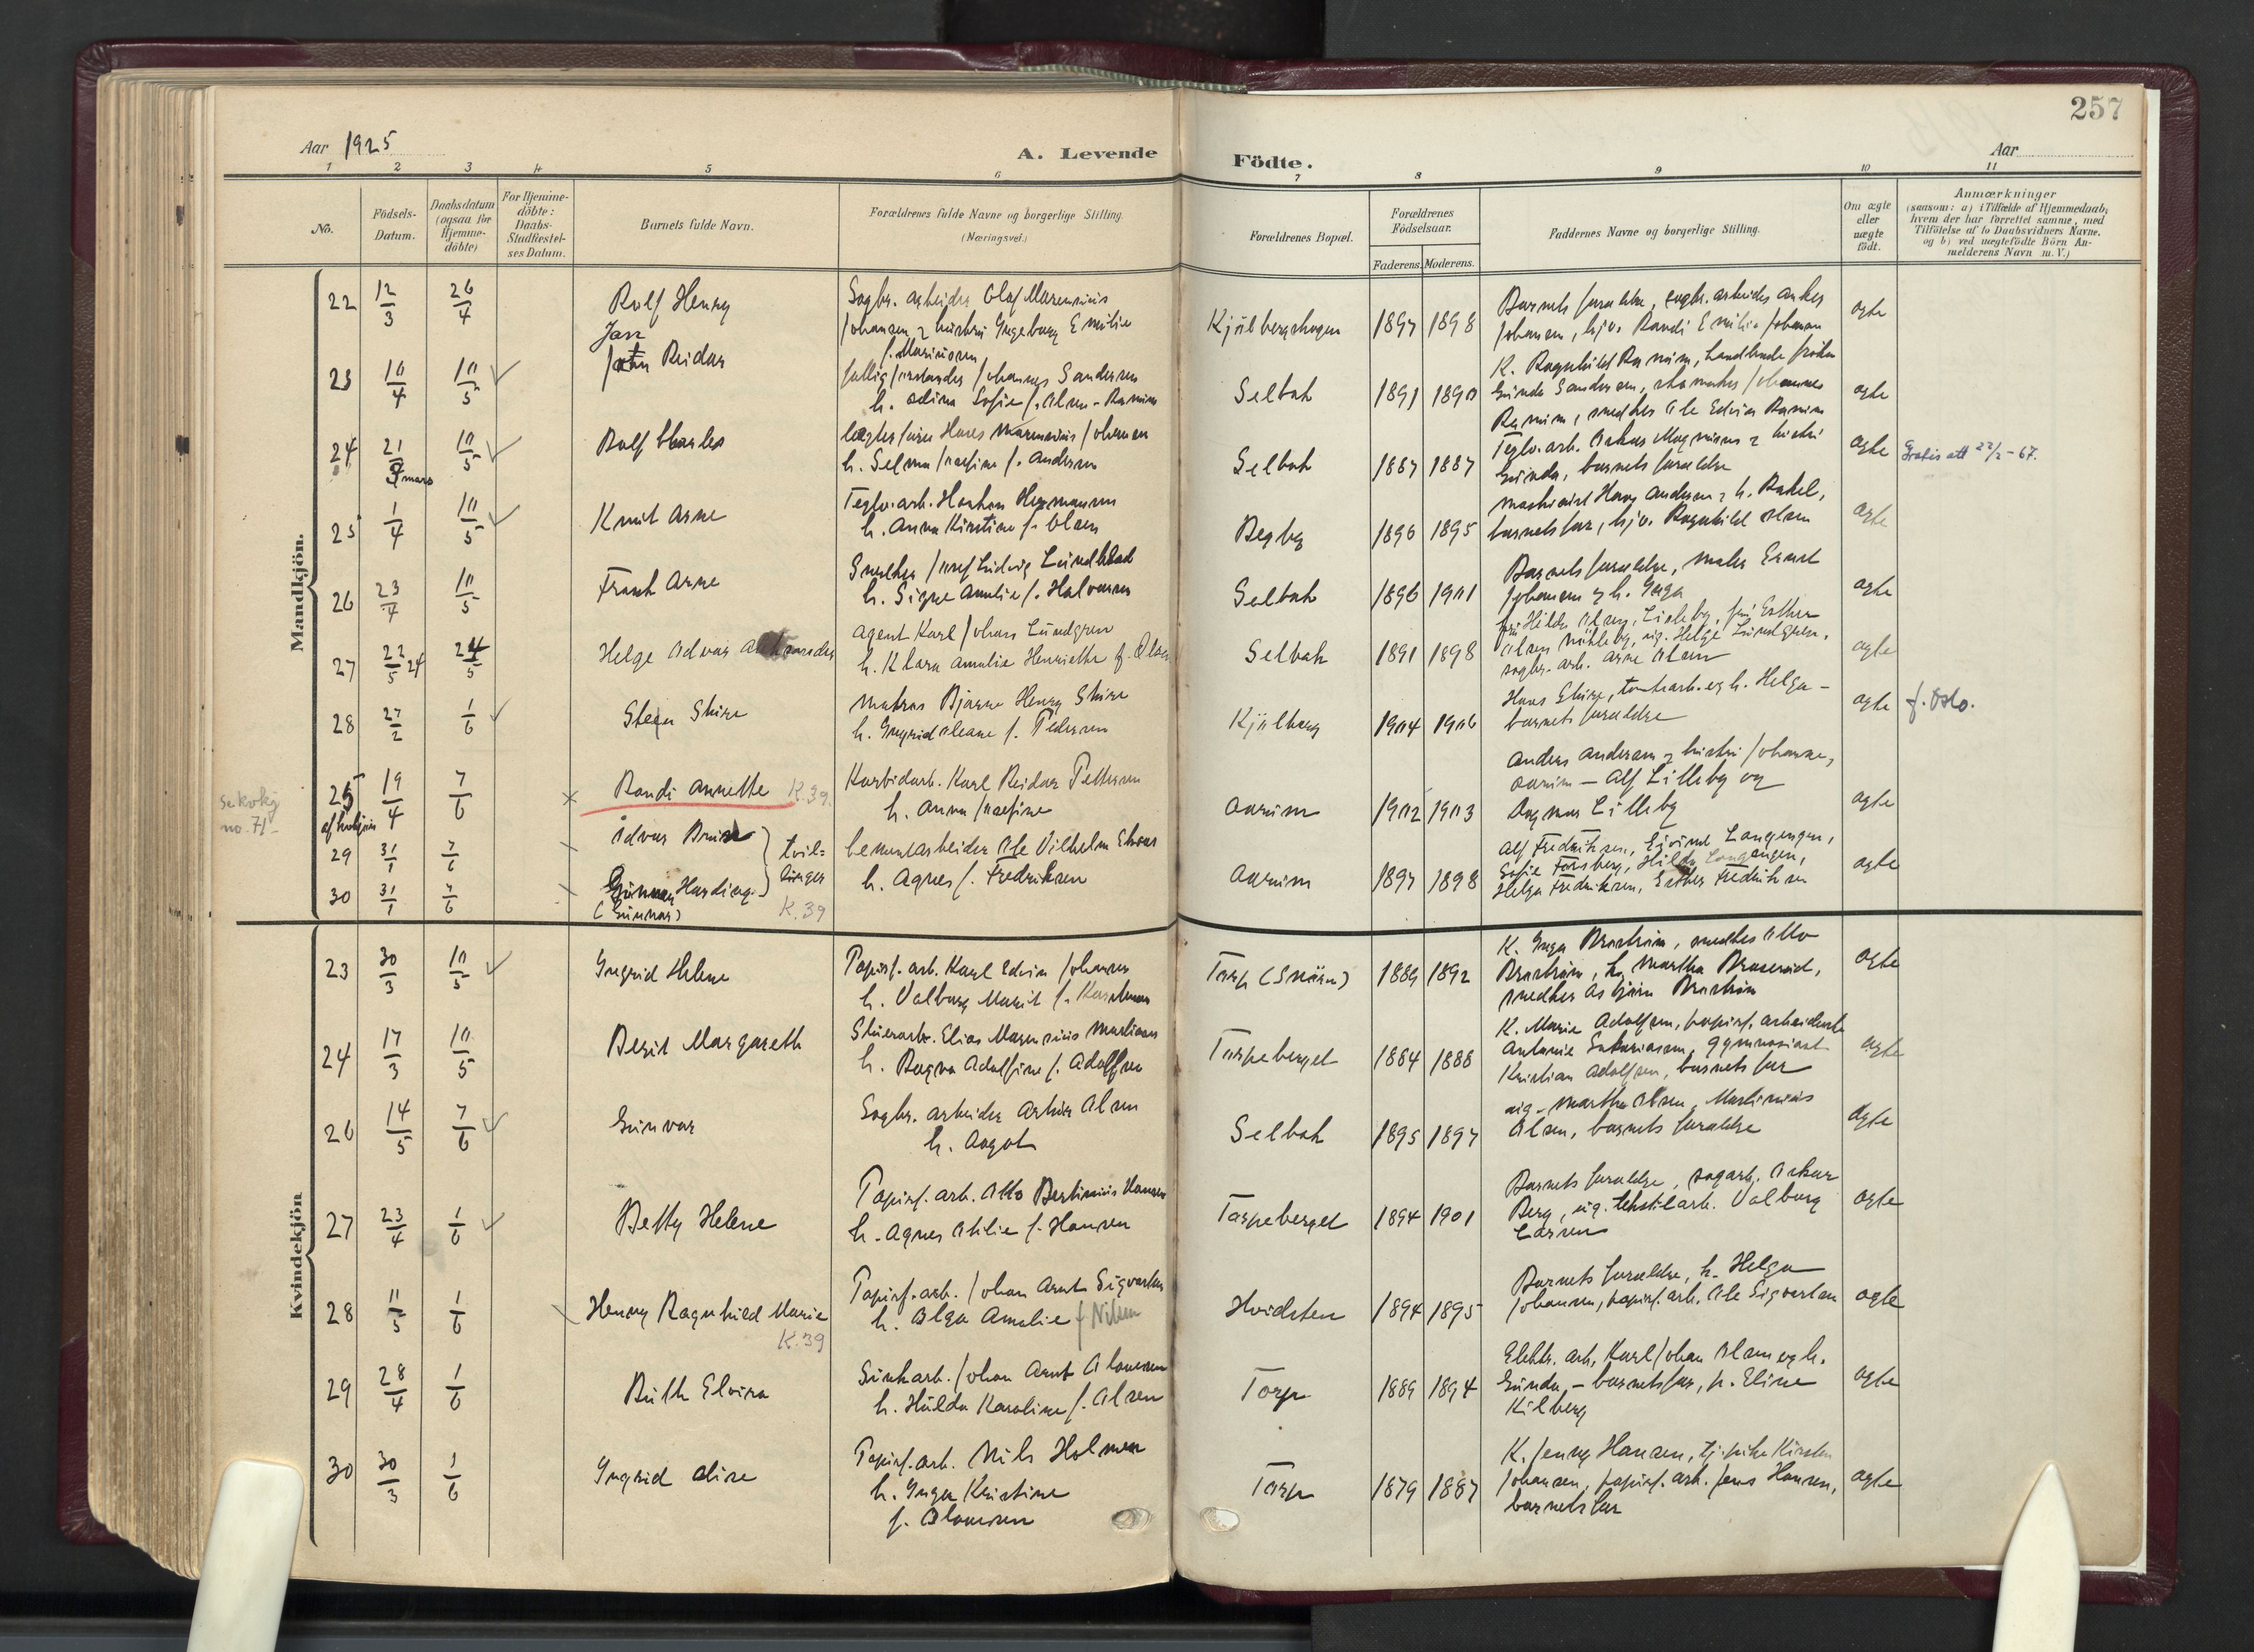 257
Aar 1925
A. Levende
Födte.
Aar
1 2 3 4 5 6 7 8 9 10 11
No.
Födsels-
Datum.
Daabsdatum
(ogsaa for
Hjemme-
döbte)
For Hjemme-
döbte:
Daabs-
Stadfæstel-
ses Datum.
Barnets fulde Navn.
Forældrenes fulde Navne og borgerlige Stilling.
(Næringsvei.)
Forældrenes Bopæl.
Forældrenes
Födselsaar.
Faderens. Moderens.
Faddernes Navne og borgerlige Stilling.
Om ægte
eller
uægte
födt.
Anmærkninger
(saasom: a) i Tilfælde af Hjemmedaab,
hvem der har forrettet samme, med
Tilföielse af to Daabsvidners Navne,
og b) ved uægtefödte Börn An-
melderens Navn m. V.)
Mandkjön.
22 12/3 26/4 Rolf Henry
Sagbr. arbeider Olaf Marensius
Johansen & hustru Ingeborg Emilie
f. Mariussen
Kjölbergshogen 1897 1898
Barnets forældre, sagbr. arbeider Anker
Johansen, hjv. Randi Emilie Johansen
ægte
23 10/4 10/5 Jan
Reidar
Johannes Sandersen
h. Odina Sofie f. Olsen - Rannim
Selbak 1891 1890
K. Ragnhild Rannim, handlende fröken
Gunda Sandersen, skomaker Johannes
Rannim, snedker Ole Edvin Rannim
ægte
24 21/3 mars 10/5 Rolf Charles
Hans Marensius Johansen
h. Selma Josefine f. Andersen
Selbak 1887 1887
Teglv. arb. Oskar Magnussen & hustru
Gunda, barnets forældre
ægte Gratis att 22/2-67.
25 1/4 10/5 Knut Arne
Teglv. arb. Haakon Hermansen
h. Anna Kirstine f. Olsen
Begby 1896 1895
Maskinist Harry Andersen & h. Rakel,
barnets far, hjv. Ragnhild Olsen
ægte
26 23/4 10/5 Frank Arne
Snedker Josef Ludvig Lundblad
h. Signe Amalie f. Halvorsen
Selbak 1896 1901
Barnets forældre, maler Ernst
Johansen og h. Inga
ægte
27 22/5 24 24/5 Helge Advar
Agent Karl Johan Lundgren
h. Klara Amalie Henriette f. Olsen
Selbak 1891 1898
fru Hilda Olsen, Lisleby, fru Esther
Olsen Nöhleby, ug. Helge Lundgren,
sagbr. arb. Arne Olsen
ægte
28 27/2 1/6 Stein Skire
Matros Bjarne Henry Skire
h. Ingrid Oleane f. Pedersen
Kjölberg 1904 1906
Hans Skire, tomtearb. og h. Helga -
barnets forældre
ægte f. Oslo.
se kvkj
no. 71
25 19/4 7/6 Randi Annette K.39.
af kvkjön
Karbidarb. Karl Reidar Pettersen
h. Anna Josefine
Aarum 1902 1903
Anders Andersen & hustru Johanne,
Aarum - Alf Lilleby og
Dagmar Lilleby
ægte
29 31/1 7/6 Advar
tvil-
linger
30 31/1 7/6 Gunnar Harding
(Gunnar) K.39
Cementarbeider Ole Vilhelm
h. Agnes f. Fredriksen
Aarum 1897 1898
Alf Fredriksen, Eivind Langengen,
Sofie Forsberg, Hilda Langengen,
Helga Fredriksen, Esther Fredriksen
ægte
Kvindekjön
23 30/3 10/5 Ingrid Helene
Papirf. arb. Karl Edvin Johansen
h. Valborg Marit f. Karlsen
Torp 1889 1892
K. Inga Braström, snedker Otto
Braström, h. Martha Braserud,
snedker Asbjörn Braström
ægte
24 17/3 10/5 Berit Margareth
Stuerarb. Elias Marensius Martinsen
h. Ragna Adolfine f. Adolfsen
Torpeberget 1884 1888
K. Marie Adolfsen, papirf. arbeiderske
Antonie Sakariassen, gymnasiast
Kristian Adolfsen, barnets far
ægte
26 14/5 7/6 Gunvor
Sagbr. arbeider Arthur Olsen
h. Aagot
Selbak 1895 1897
ug. Martha Olsen, Martinius
Olsen, barnets forældre
ægte
27 23/4 1/6 Betty Helene
Papirf. arb. Otto Bertinius Hansen
h. Agnes Otilie f. Hansen
Torpeberget 1894 1901
Barnets forældre, sagarb. Oskar
Berg, ug. tekstilarb. Valborg
Larsen
ægte
28 11/5 1/6 Henny Ragnhild Marie
K.39
Papirf. arb. Johan Arnt Sigvartsen
h. Olga Amalie f Nilsen
Hvidsten 1894 1895
Barnets forældre, h. Helga
Johansen, papirf. arb. Ole Sigvartsen
ægte
29 28/4 1/6 Ruth Elvira
Johan Arnt Olaussen
h. Hulda Karoline f. Olsen
Torp 1889 1894
Elektr. arb. Karl Johan Olsen og h.
Gunda, - barnets far, h. Eline
Kilberg
ægte
30 30/3 1/6 Ingrid Alise
Papirf. arb. Nils Holmen
h. Inga Kristine
f. Olaussen
Torp 1879 1887
K. Jenny Hansen, tj. pike Kirsten
Johansen, papirf. arb. Jens Hansen,
barnets far
ægte